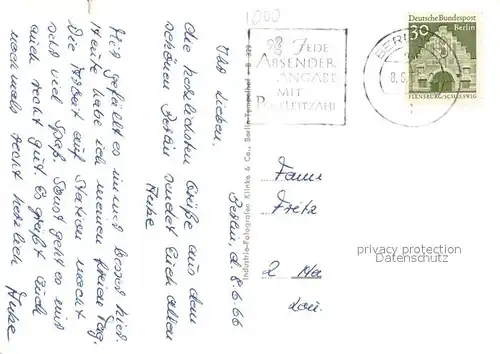 1000
Deutsche Bundespost
30 Berlin
FLENSBURG/SCHLESWIG
BERLIN
8.6.
JEDE
ABSENDER
ANGABE
MIT
POSTLEITZAHL
Berlin, d. 8.6.66
Ihr Lieben.
Die herzlichsten Grüße aus dem
schönen Berlin sendet Euch allen
Anke
Hier gefällt es immer besser hier.
Heute habe ich meinen freien Tag.
Die Arbeit auf Station macht
sehr viel Spaß. Sonst geht es mir
auch recht gut. Es grüßt Euch
nochmals recht herzlich Anke
Industrie-Fotografen Klinke & Co., Berlin-Tempelhof
Fam.
Fritz
2
privacy protection
Datenschutz